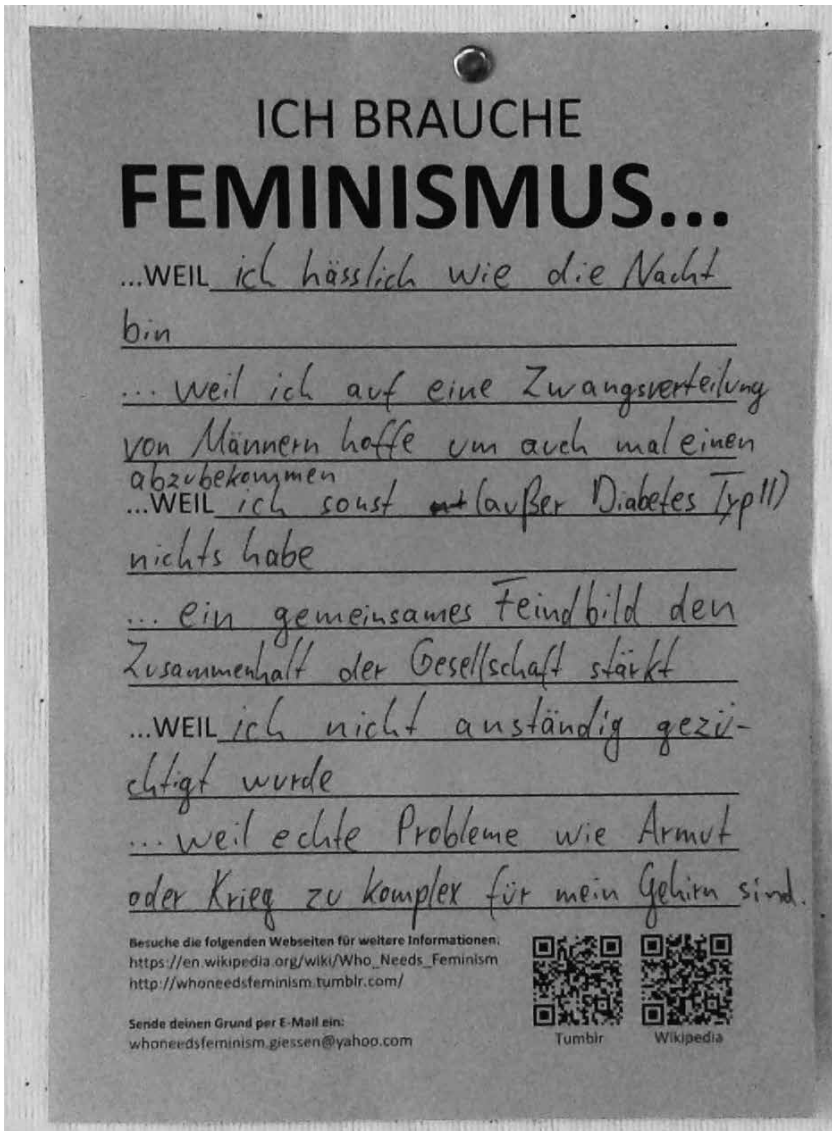 ICH BRAUCHE
FEMINISMUS...
...WEIL ich hässlich wie die Nacht
bin
... weil ich auf eine Zwangsverteilung
von Männern hoffe um auch mal einen
abzubekommen
...WEIL ich sonst (außer Diabetes Typ II)
nichts habe
... ein gemeinsames Feindbild den
Zusammenhalt der Gesellschaft stärkt
...WEIL ich nicht anständig gezü-
chtigt wurde
... weil echte Probleme wie Armut
oder Krieg zu komplex für mein Gehirn sind.
Besuche die folgenden Webseiten für weitere Informationen:
https://en.wikipedia.org/wiki/Who_Needs_Feminism
http://whoneedsfeminism.tumblr.com/
Sende deinen Grund per E-Mail ein:
whoneedsfeminism.giessen@yahoo.com
Tumblr
Wikipedia